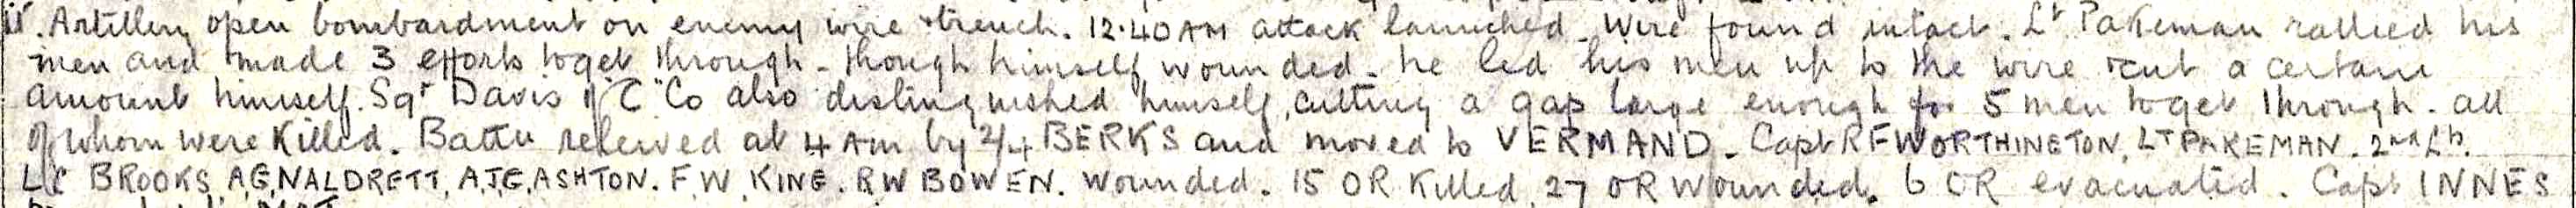 Artillery open bombardment on enemy wire & trench. 12.40 AM attack launched. Wire found intact. Lt Pakeman rallied his
men and made 3 efforts to get through - though himself wounded - he led his men up to the wire & cut a certain
amount himself. Sgt Davis of "C" Co also distinguished himself, cutting a gap large enough for 5 men to get through - all
of whom were killed. Battn relieved at 4 AM by 2/4 BERKS and moved to VERMAND - Capt RF WORTHINGTON, LT PAKEMAN. 2nd Lts.
BROOKS, A.G. NALDRETT, A.J.E. ASHTON. F W KING. R W BOWEN. Wounded. 15 OR Killed, 27 OR Wounded. 6 OR evacuated. Capt INNES